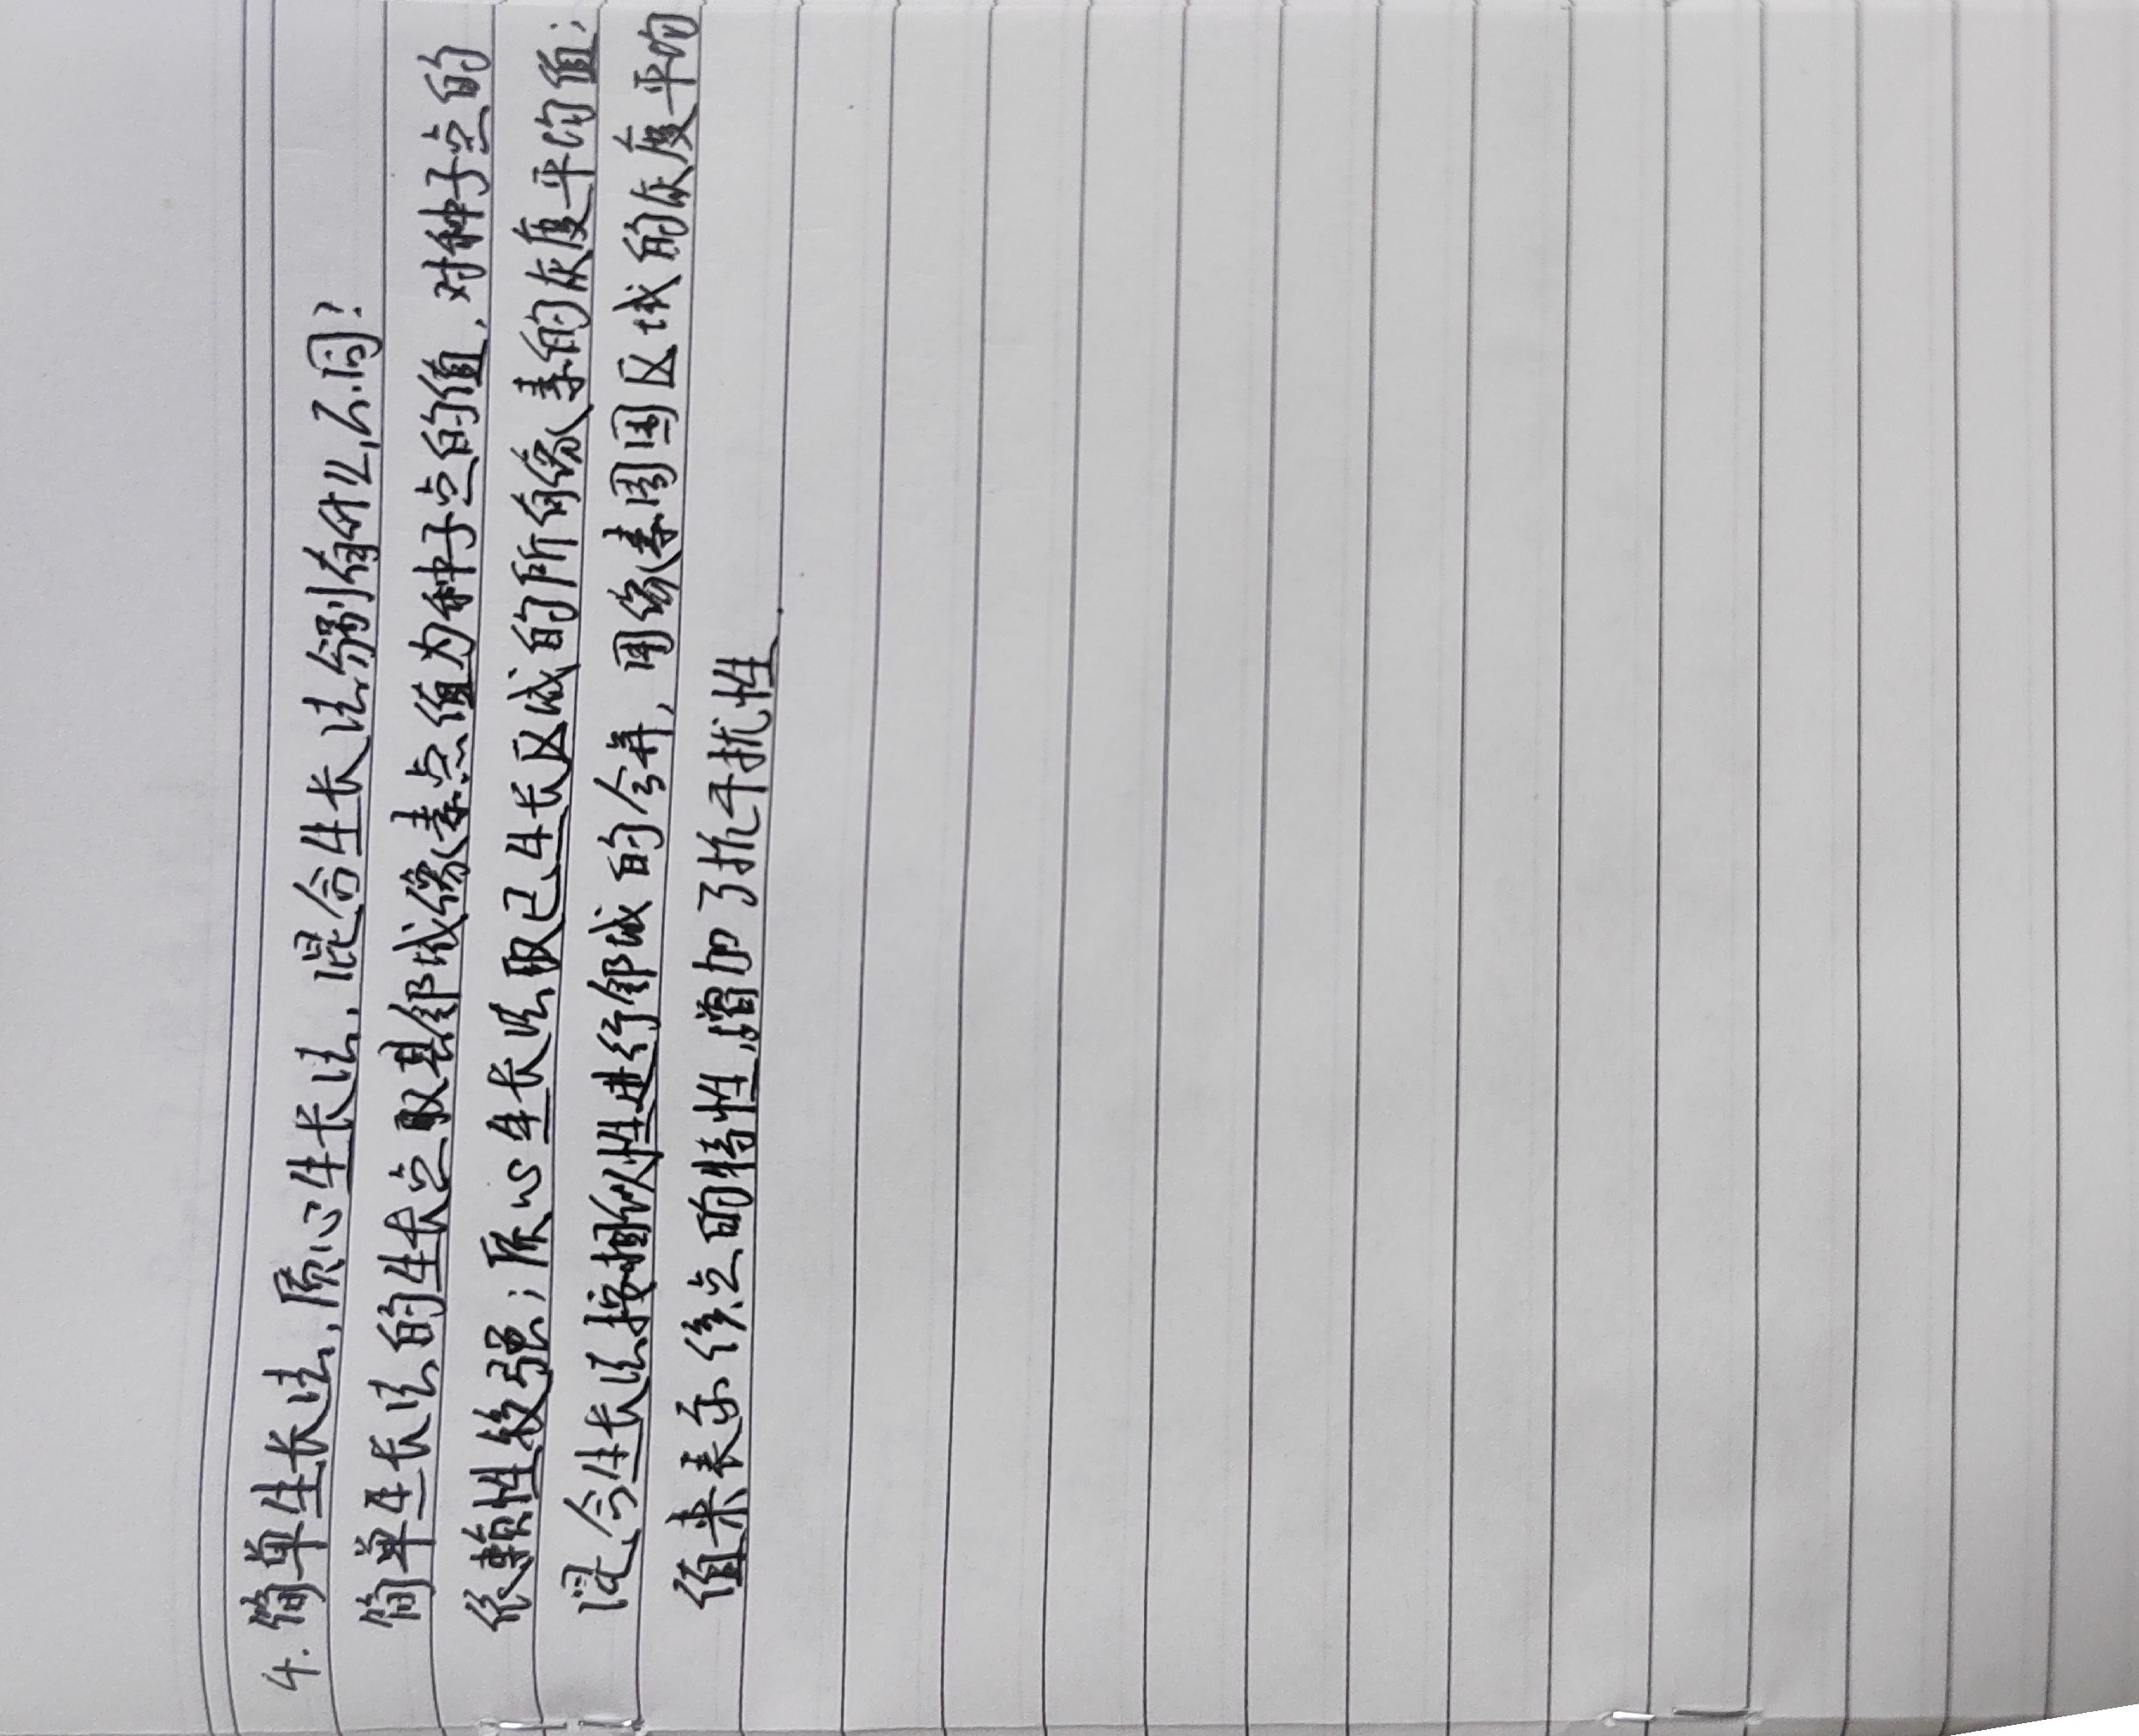 4. 简单生长法,质心生长法,混合生长法分别有什么不同?
简单生长法的生长点取其邻域像素点值为种子点的值,对种子点的
依赖性较强;质心生长法取已生长区域的所有像素的灰度平均值;
混合生长法按相似性进行邻域的合并,用像素周围区域的灰度平均
值来表示该点的特性,增加了抗干扰性.